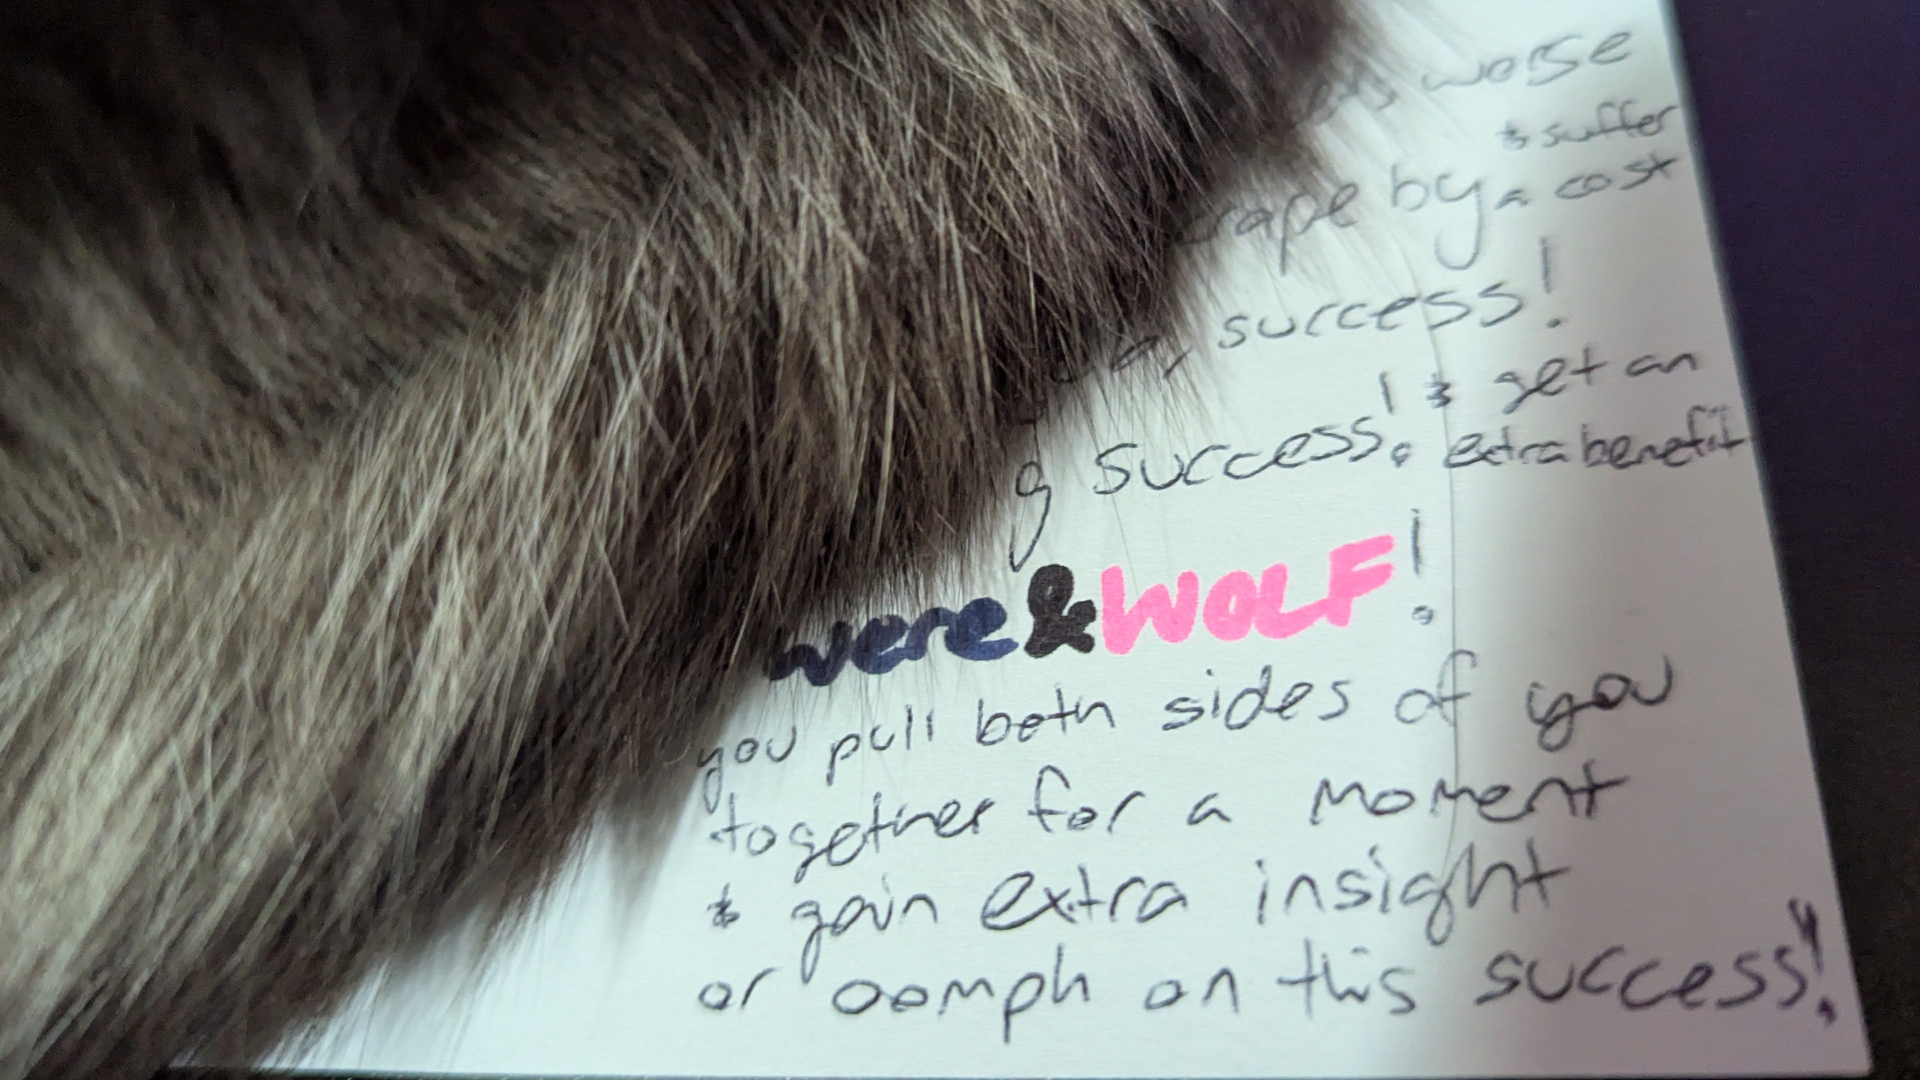 worse
& suffer
by a cost
success!
& get an
success! extra benefit
were & WOLF!
you pull both sides of you
together for a moment
& gain extra insight
or oomph on this success!